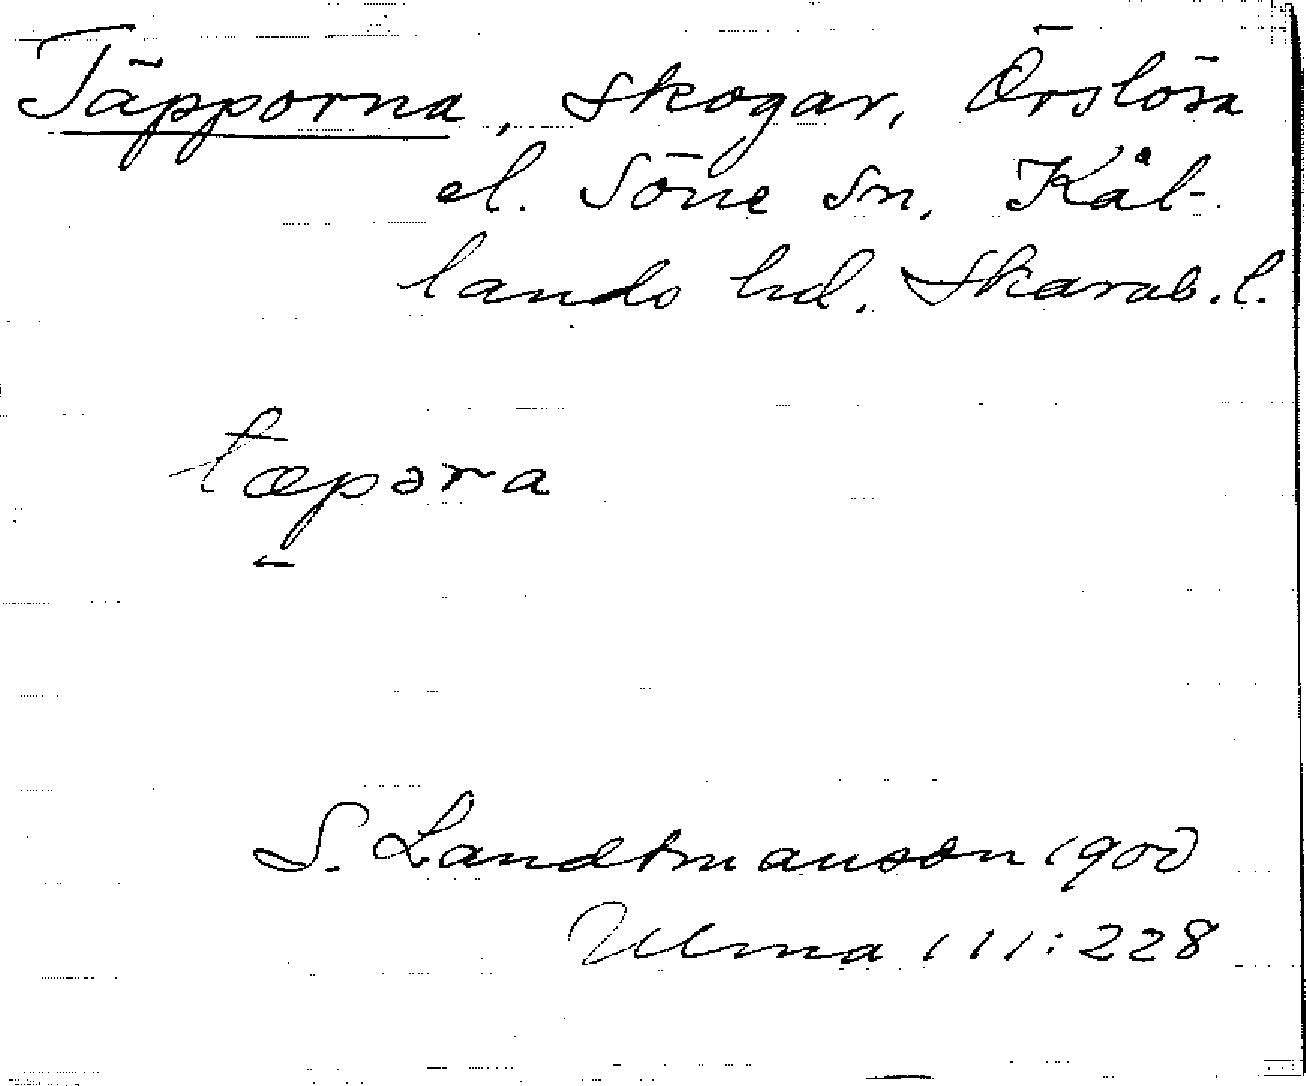 Täpporna, skogar, Örslösa
el. Söne sn, Kål-
lands hd. Skarab. l.
tæpəra
S. Landtmanson 1900
Ulma 111:228